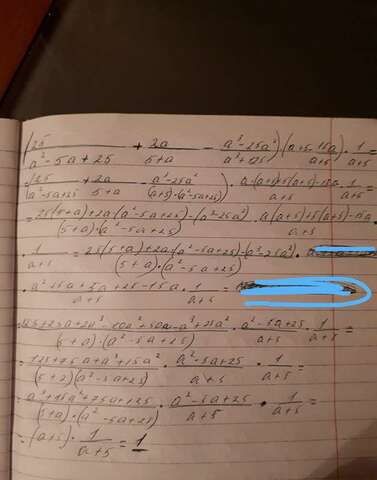 (25/(a²-5a+25) + 2a/(5+a) - (a³-25a²)/(a³+125)) · (a+5 - 15a/(a+5)) · 1/(a+5)
(25/(a²-5a+25) + 2a/(5+a) - (a³-25a²)/((a+5)·(a²-5a+25))) · (a·(a+5)+5(a+5)-15a)/(a+5) · 1/(a+5) =
= (25(5+a)+2a·(a²-5a+25)-(a³-25a²))/((5+a)·(a²-5a+25)) · (a(a+5)+5(a+5)-15a)/(a+5)
· 1/(a+5) = (25(5+a)+2a·(a²-5a+25)-(a³-25a²))/((5+a)·(a²-5a+25)) ·
· (a²+5a+5a+25-15a)/(a+5) · 1/(a+5) =
(125+25a+2a³-10a²+50a-a³+25a²)/((5+a)·(a²-5a+25)) · (a²-5a+25)/(a+5) · 1/(a+5) =
= (125+75a+a³+15a²)/((5+a)(a²-5a+25)) · (a²-5a+25)/(a+5) · 1/(a+5) =
= (a³+15a²+75a+125)/((5+a)·(a²-5a+25)) · (a²-5a+25)/(a+5) · 1/(a+5) =
= (a+5) · 1/(a+5) = 1